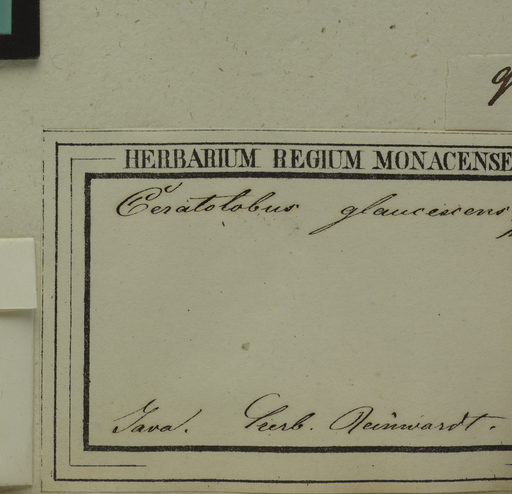 HERBARIUM REGIUM MONACENSE
Ceratolobus glaucescens
Java. Herb. Reinwardt.